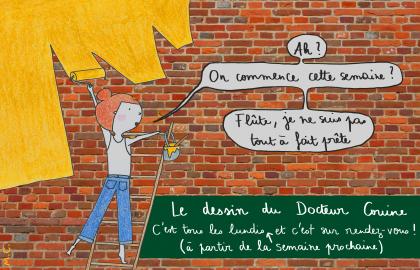 Ah ?
On commence cette semaine ?
Flûte, je ne suis pas
tout à fait prête
Le dessin du Docteur Couine
C'est tous les lundis et c'est sur rendez-vous !
(à partir de la semaine prochaine)